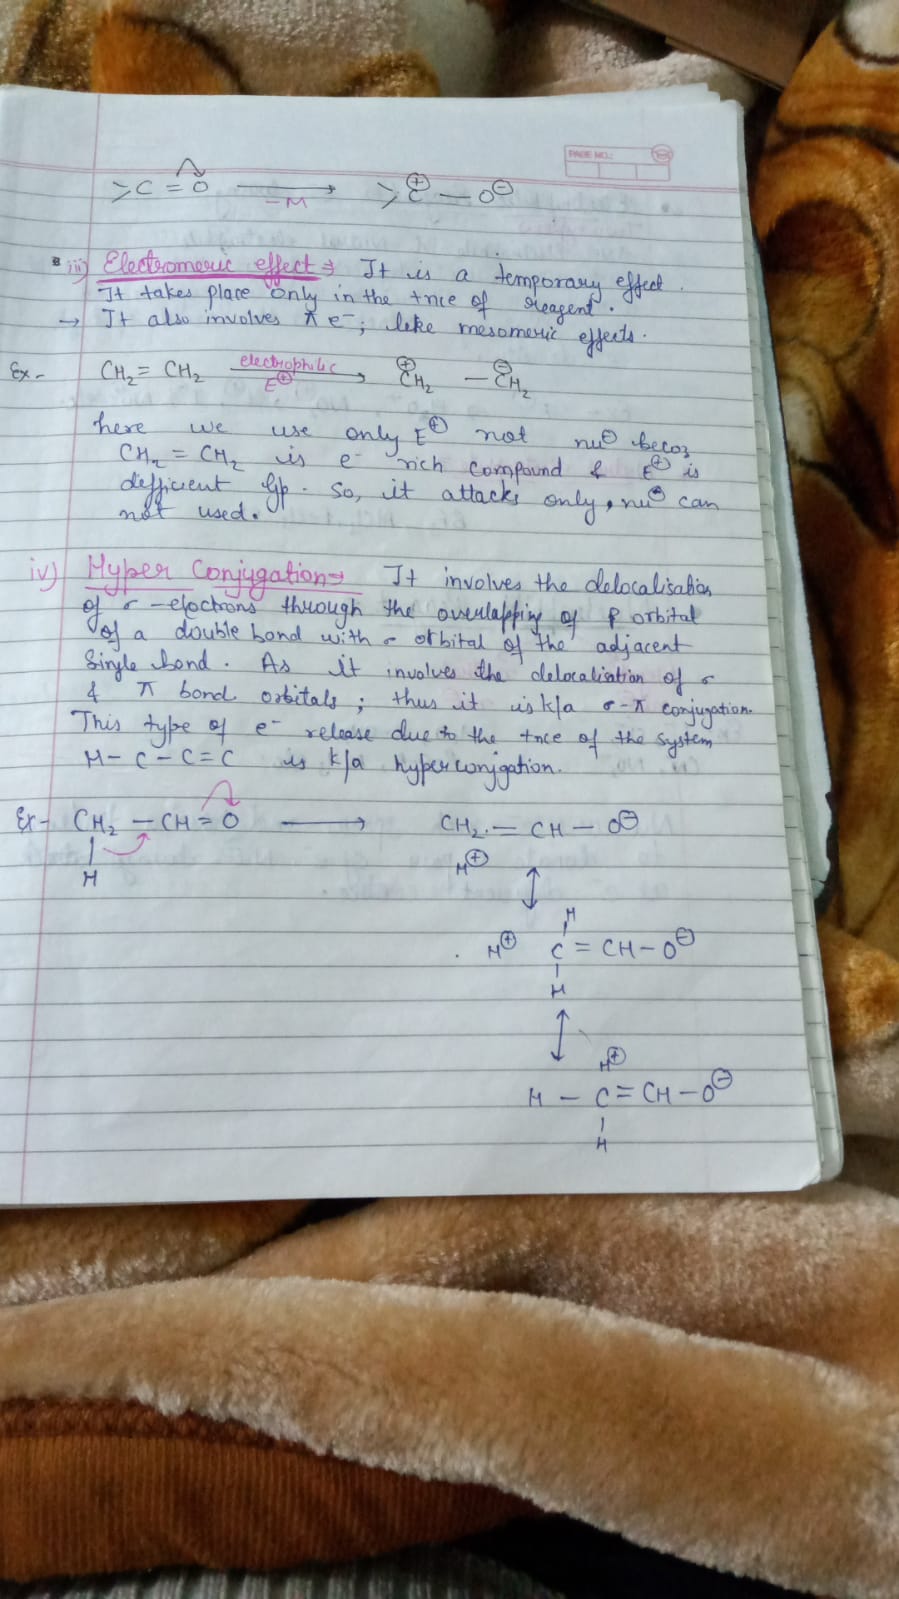 PAGE NO.:
>C = O —M→ >C⊕ — O⊖
iii) Electromeric effect ⇒ It is a temporary effect.
It takes place only in the +nce of reagent.
→ It also involves π e⁻, like mesomeric effects.
Ex - CH₂ = CH₂ electrophilic E⊕ → C⊕H₂ — C⊖H₂
here we use only E⊕ not nu⊖ becoz
CH₂ = CH₂ is e⁻ rich compound & E⊕ is
defficient gp. So, it attacks only, nu⊖ can
not used.
iv) Hyper Conjugation ⇒ It involves the delocalisation
of σ - electrons through the overlapping of p orbital
of a double bond with σ orbital of the adjacent
single bond. As it involves the delocalisation of σ
& π bond orbitals; thus it is k/a σ-π conjugation.
This type of e⁻ release due to the +nce of the system
H - C - C = C is k/a hyperconjgation.
Ex - CH₂ — CH = O → CH₂ — CH — O⊖
H
H⊕
H
H⊕ C = CH - O⊖
H
H⊕
H — C = CH - O⊖
H